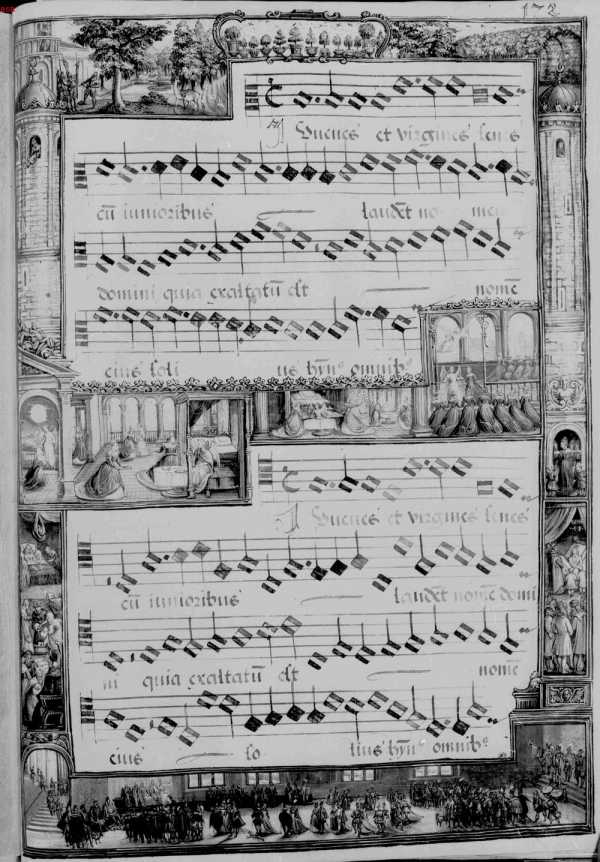 172
Iuuenes et virgines senes
cū iunioribus laudēt no mē
domini quia exaltatū est nomē
eius soli us hỹnꝰ omnibꝰ
Iuuenes et virgines senes
cū iunioribus laudēt nomē domi
ni quia exaltatū est nomē
eius so lius hỹnꝰ omnibꝰ